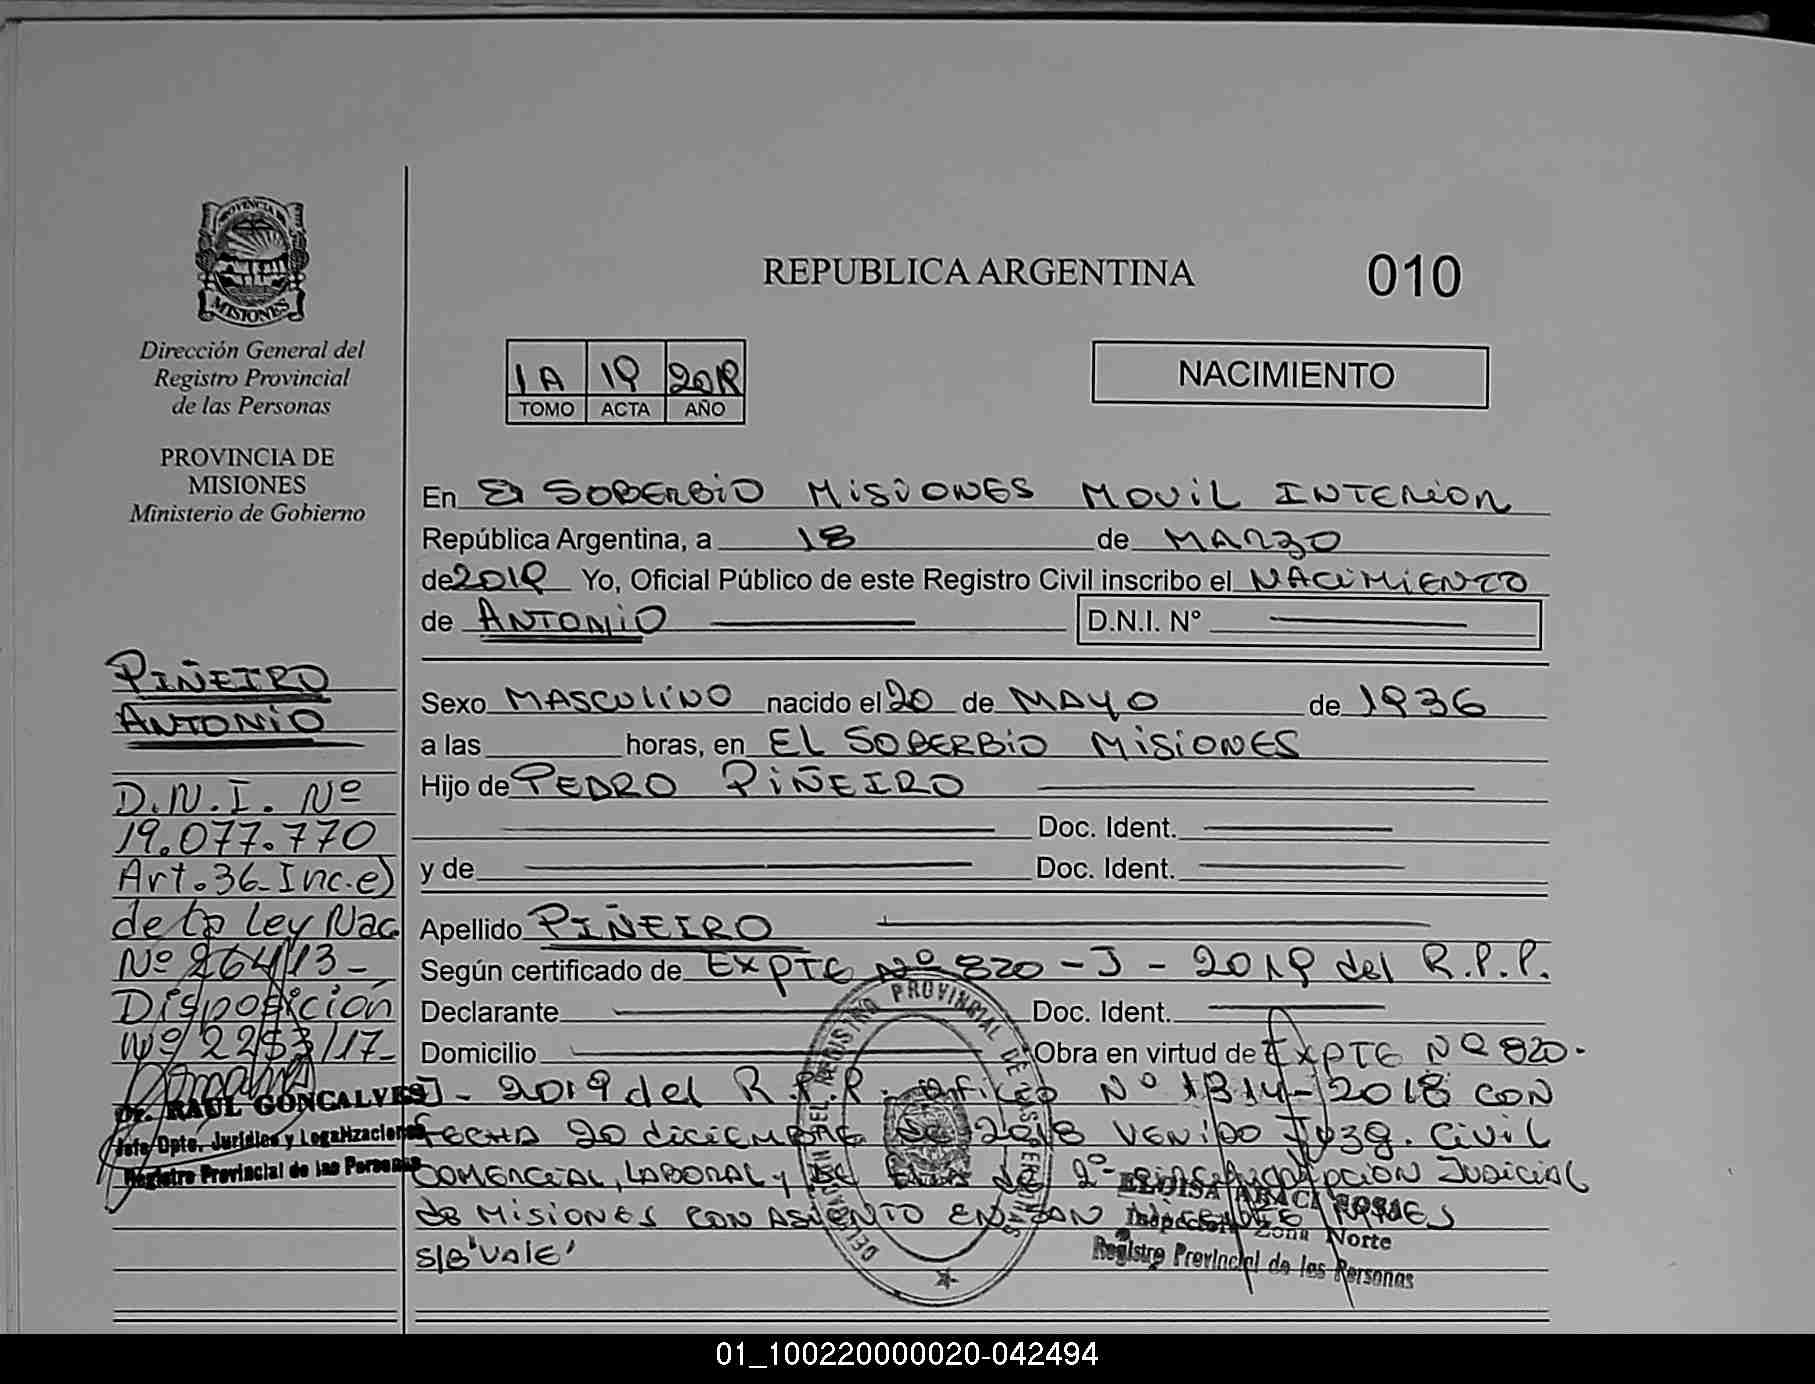 PROVINCIA DE
MISIONES
Dirección General del
Registro Provincial
de las Personas
PROVINCIA DE
MISIONES
Ministerio de Gobierno
PIÑEIRO
ANTONIO
D.N.I. Nº
19.077.770
Art. 36 Inc. e)
de la Ley Nac
Nº 26413-
Disposición
Nº 2253/17-
Dr. RAUL GONCALVES
Jefe Dpto. Jurídico y Legalizaciones
Registro Provincial de las Personas
REPUBLICA ARGENTINA
010
1A 19 2019
TOMO ACTA AÑO
NACIMIENTO
En El SOBERBIO MISIONES MOVIL INTERIOR
República Argentina, a 18 de MARZO
de 2019 Yo, Oficial Público de este Registro Civil inscribo el NACIMIENTO
de ANTONIO D.N.I. Nº
Sexo MASCULINO nacido el 20 de MAYO de 1936
a las horas, en EL SOBERBIO MISIONES
Hijo de PEDRO PIÑEIRO
Doc. Ident.
y de Doc. Ident.
Apellido PIÑEIRO
Según certificado de EXPTE Nº 820 - J - 2019 del R.P.P.
Declarante Doc. Ident.
Domicilio Obra en virtud de EXPTE Nº 820-
J - 2019 del R.P.P. oficio Nº 1314-2018 CON
FECHA 20 DICIEMBRE DE 2018 VENIDO Juzg. Civil
COMERCIAL, LABORAL y DE de 2º circunscripción JUDICIAL
de MISIONES CON ASIENTO EN SAN
S/B "VALE"
DEL REGISTRO PROVINCIAL DE LAS PERSONAS
ELOISA
Inspectora Zona Norte
Registro Provincial de las Personas
01_100220000020-042494